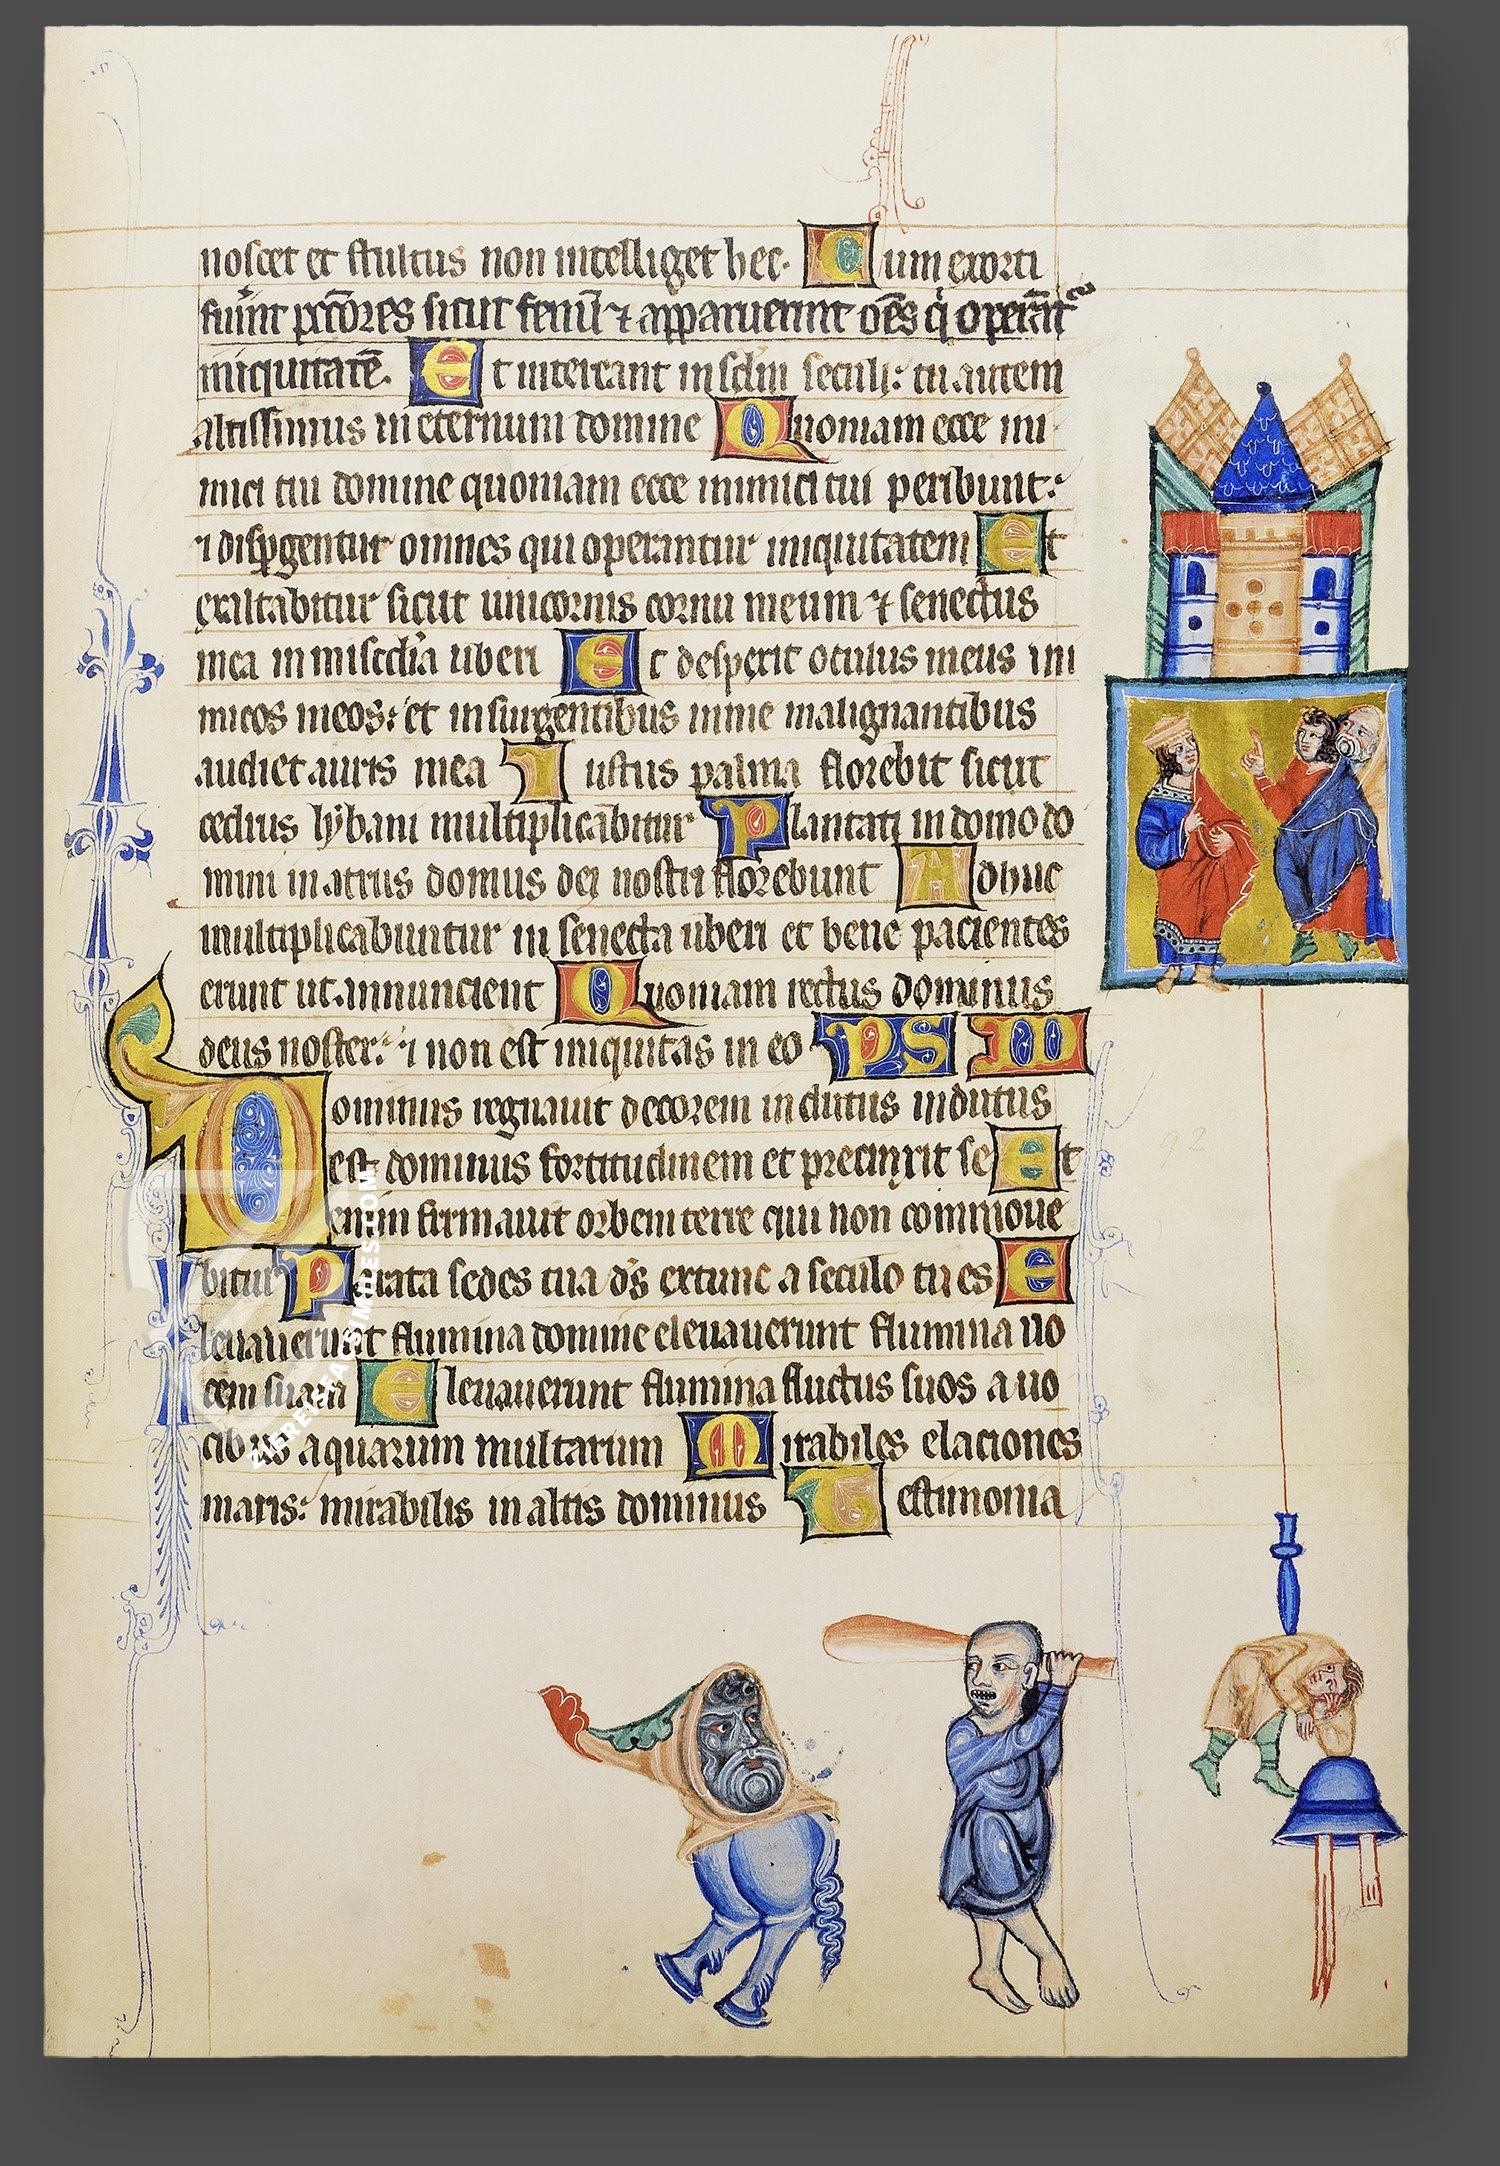 noscet et stultus non intelliget hec. Cum exorti
fu'int pctōres sicut fenū ⁊ apparuerint oēs q̇ operāt'
iniquitatē. Et intereant in sclm seculi: tu autem
altissimus in eternum domine Quoniam ecce ini
mici tui domine quoniam ecce inimici tui peribunt:
⁊ dispgentur omnes qui operantur iniquitatem Et
exaltabitur sicut unicornis cornu meum ⁊ senectus
mea in miscd'ia uberi Et despexit oculus meus ini
micos meos: et insurgentibus in me malignantibus
audiet auris mea Iustus palma florebit sicut
cedrus lybani multiplicabitur Plantati in domo do
mini in atriis domus dei nostri florebunt Adhuc
multiplicabuntur in senecta uberi et bene pacientes
erunt ut annuncient Quoniam rectus dominus
deus noster: ⁊ non est iniquitas in eo PS M
Dominus regnauit decorem indutus indutus
est dominus fortitudinem et precinxit se Et
enim firmauit orbem terre qui non commoue
bitur Parata sedes tua d's extunc a seculo tu es E
leuauerunt flumina domine eleuauerunt flumina uo
cem suam Eleuauerunt flumina fluctus suos a uo
cibus aquarum multarum Mirabiles elaciones
maris: mirabilis in altis dominus Testimonia
92
95